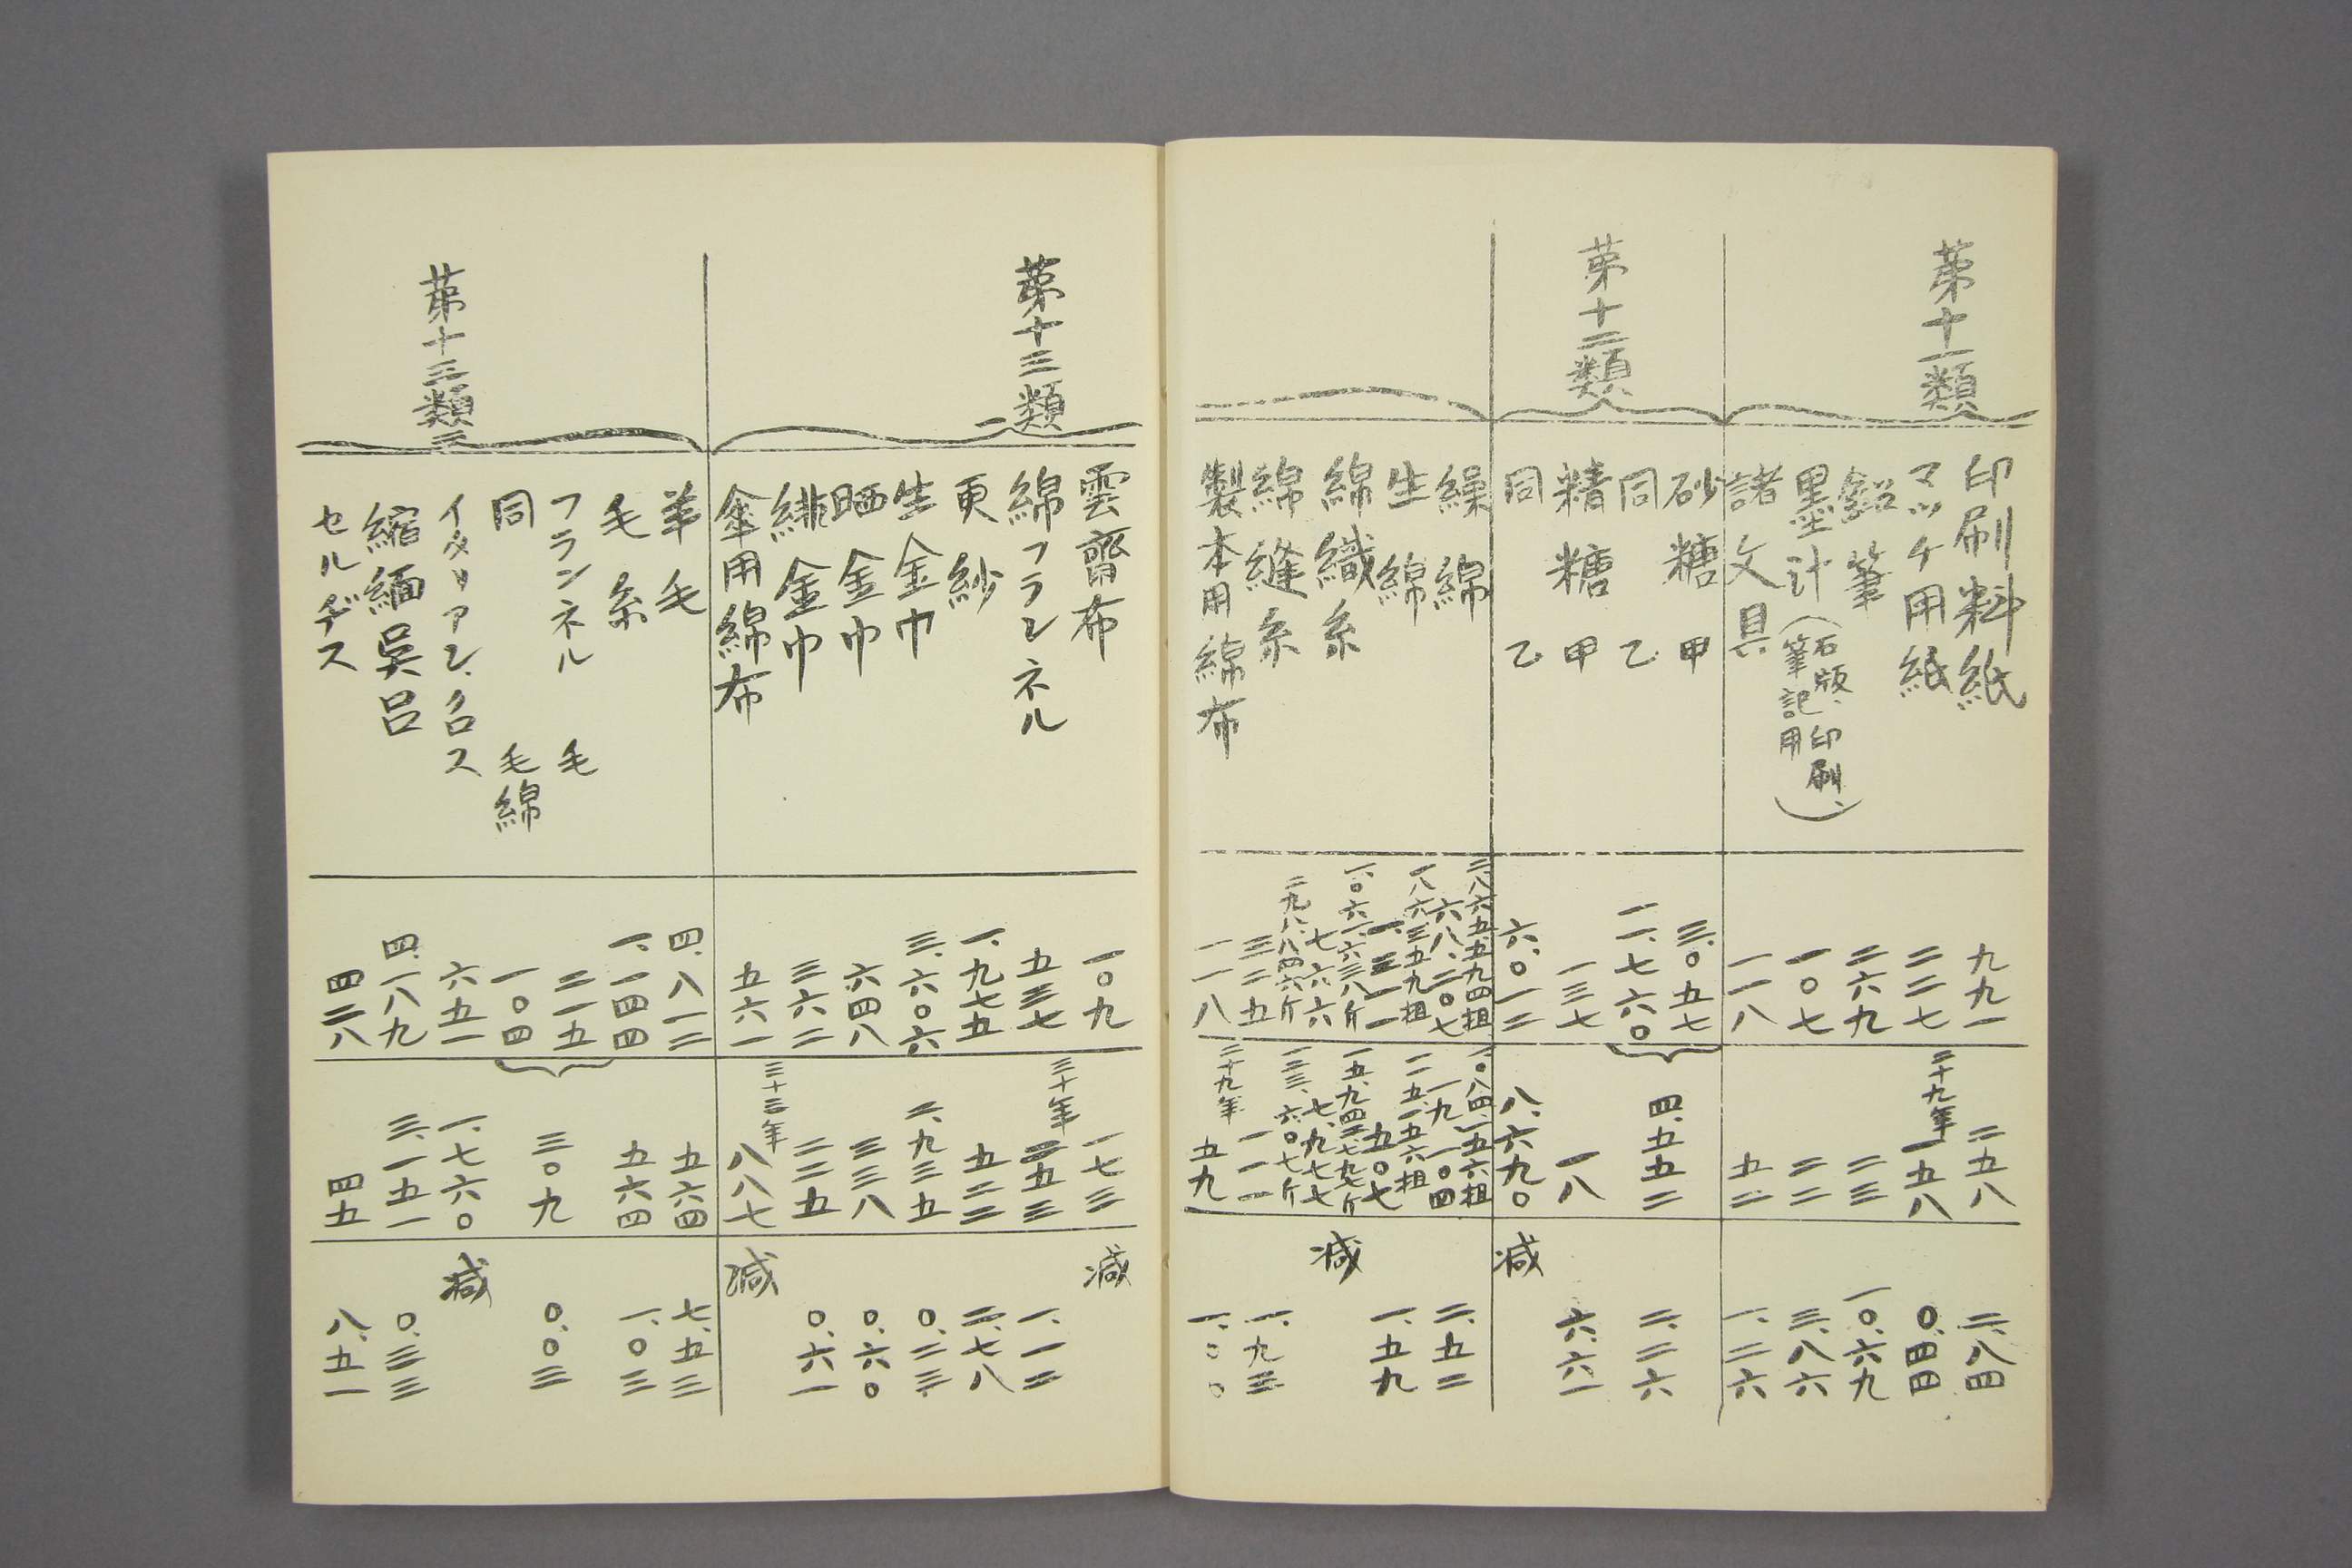 第十一類
印刷料紙 九九一 二五八 二、八四
マッチ用紙 二二七 二十九年 一五八 〇、四四
鉛筆 二六九 二三 一〇、六九
墨汁(石版、印刷、筆記用) 一〇七 二二 三、八六
諸文具 一一八 五二 一、二六
第十二類
砂糖 甲 三、〇五七
同 乙 一一、七六〇 四、五五二 二、二六
精糖 甲 一三七 一八 六、六一
同 乙 六、〇一二 八、六九〇 減
繰綿 三、八六五、五九四担 六八、二〇七 一、〇八四、一五六担 一九、一〇四 二、五二
生綿 一八六、三五九担 一、三一一 一一五、一五六担 五〇七 一、五九
綿織糸 一、〇六一、六三八斤 七六六 減
綿縫糸 二九八、八四六斤 三二五 一三三、六〇七斤 一一一 一、九三
製本用綿布 一一八 二十九年 五九 一、〇〇
第十三類二
雲齋布 一〇九 一七三 減
綿フランネル 五三七 三十年 二五三 一、一二
更紗 一、九七五 五二二 二、七八
生金巾 三、六〇六 二、九三五 〇、二三
晒金巾 六四八 三三八 〇、六〇
緋金巾 三六二 二二五 〇、六一
傘用綿布 五六一 三十三年 八八七 減
第十三類三
羊毛 四、八一二 五六四 七、五三
毛糸 一、一四四 五六四 一、〇三
フランネル 毛 二一五
同 毛綿 一〇四 三〇九 〇、〇三
イタリアン、クロス 六五一 一、七六〇 減
縮緬呉呂 四、一八九 三、一五一 〇、三三
セルヂス 四二八 四五 八、五一